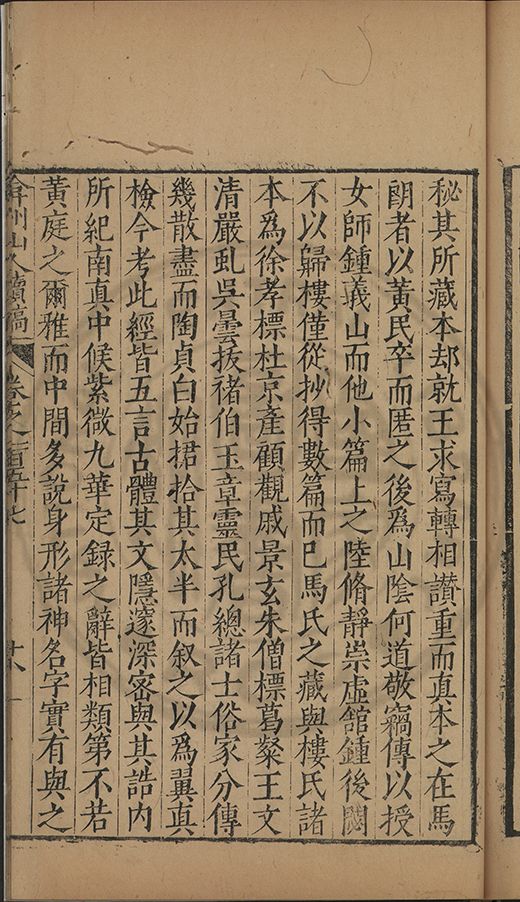 秘其所藏本却就王求寫轉相讃重而真本之在馬
朗者以黃民卒而匿之後爲山陰何道敬竊傳以授
女師鍾義山而他小篇上之陸脩靜崇虛館鍾後閟
不以歸樓僅從抄得數篇而巳馬氏之藏與樓氏諸
本爲徐孝標杜京產顧觀戚景玄朱僧標葛粲王文
清嚴虬吳曇抜禇伯玉章靈民孔總諸士俗家分傳
幾散盡而陶貞白始捃拾其太半而叙之以爲翼真
檢今考此經皆五言古體其文隱邃深密與其誥内
所紀南真中候紫微九華定録之辭皆相類第不若
黃庭之爾雅而中間多說身形諸神名字實有與之
弇州山人續稿
卷之一百五十七
廿八